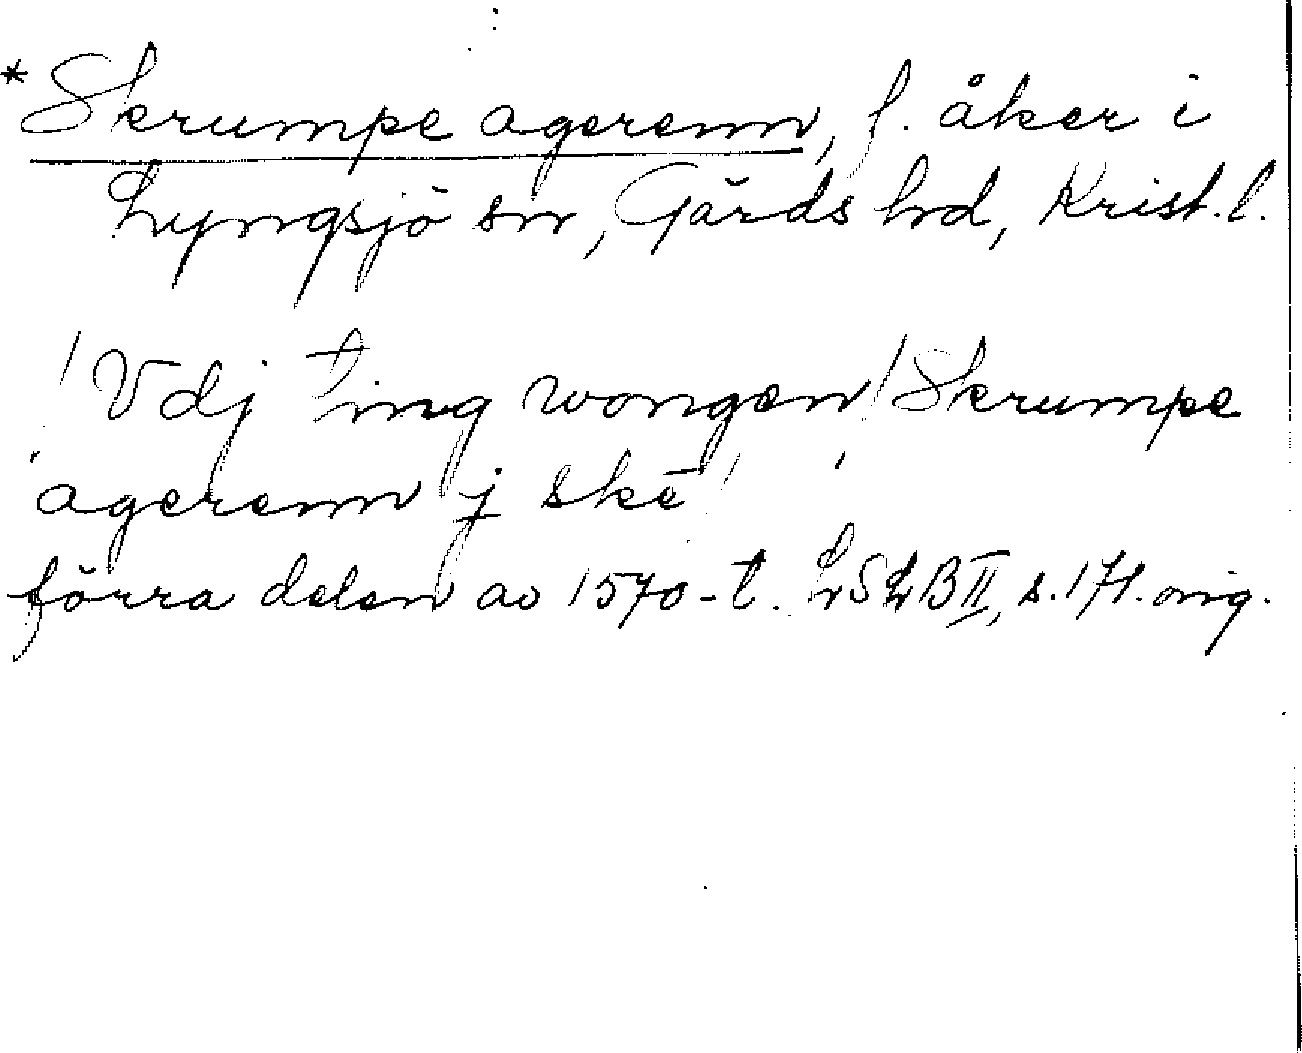 *Skrumpe agerenn, f. åker i
Lyngsjö sn, Gärds hd, Krist. l.
/Vdj ting wongen/ Skrumpe
agerenn j skē /
förra delen av 1570-t. LSLB II, s. 171. orig.